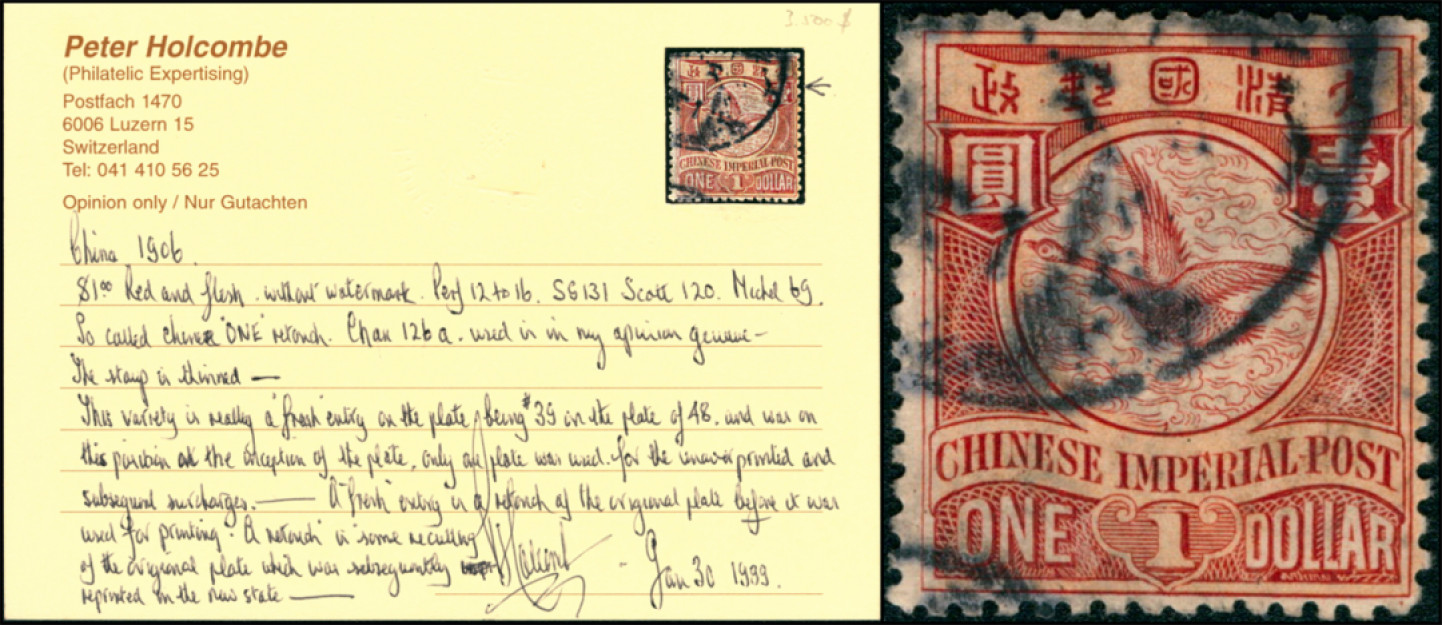 3.500 $
Peter Holcombe
(Philatelic Expertising)
Postfach 1470
6006 Luzern 15
Switzerland
Tel: 041 410 56 25
Opinion only / Nur Gutachten
CHINESE IMPERIAL POST
ONE 1 DOLLAR
China 1906.
$1.00 Red and flesh . without watermark. Perf 12 to 16. SG 131 Scott 120. Michel 69.
So called "ONE" retouch. Chan 126a. used is in my opinion genuine —
The stamp is thinned —
This variety is really a 'fresh' entry on the plate, being #39 on the plate of 48, and was on
this position at the inception of the plate, only one plate was used. for the unoverprinted and
subsequent surcharges. — A 'fresh' entry is a retouch of the origional plate before it was
used for printing. A 'retouch' is some recutting
of the origional plate which was subsequently
reprinted in the new state —
Holcombe - Jan 30 1999.
政郵國清大
圓 壹
CHINESE IMPERIAL·POST
ONE 1 DOLLAR